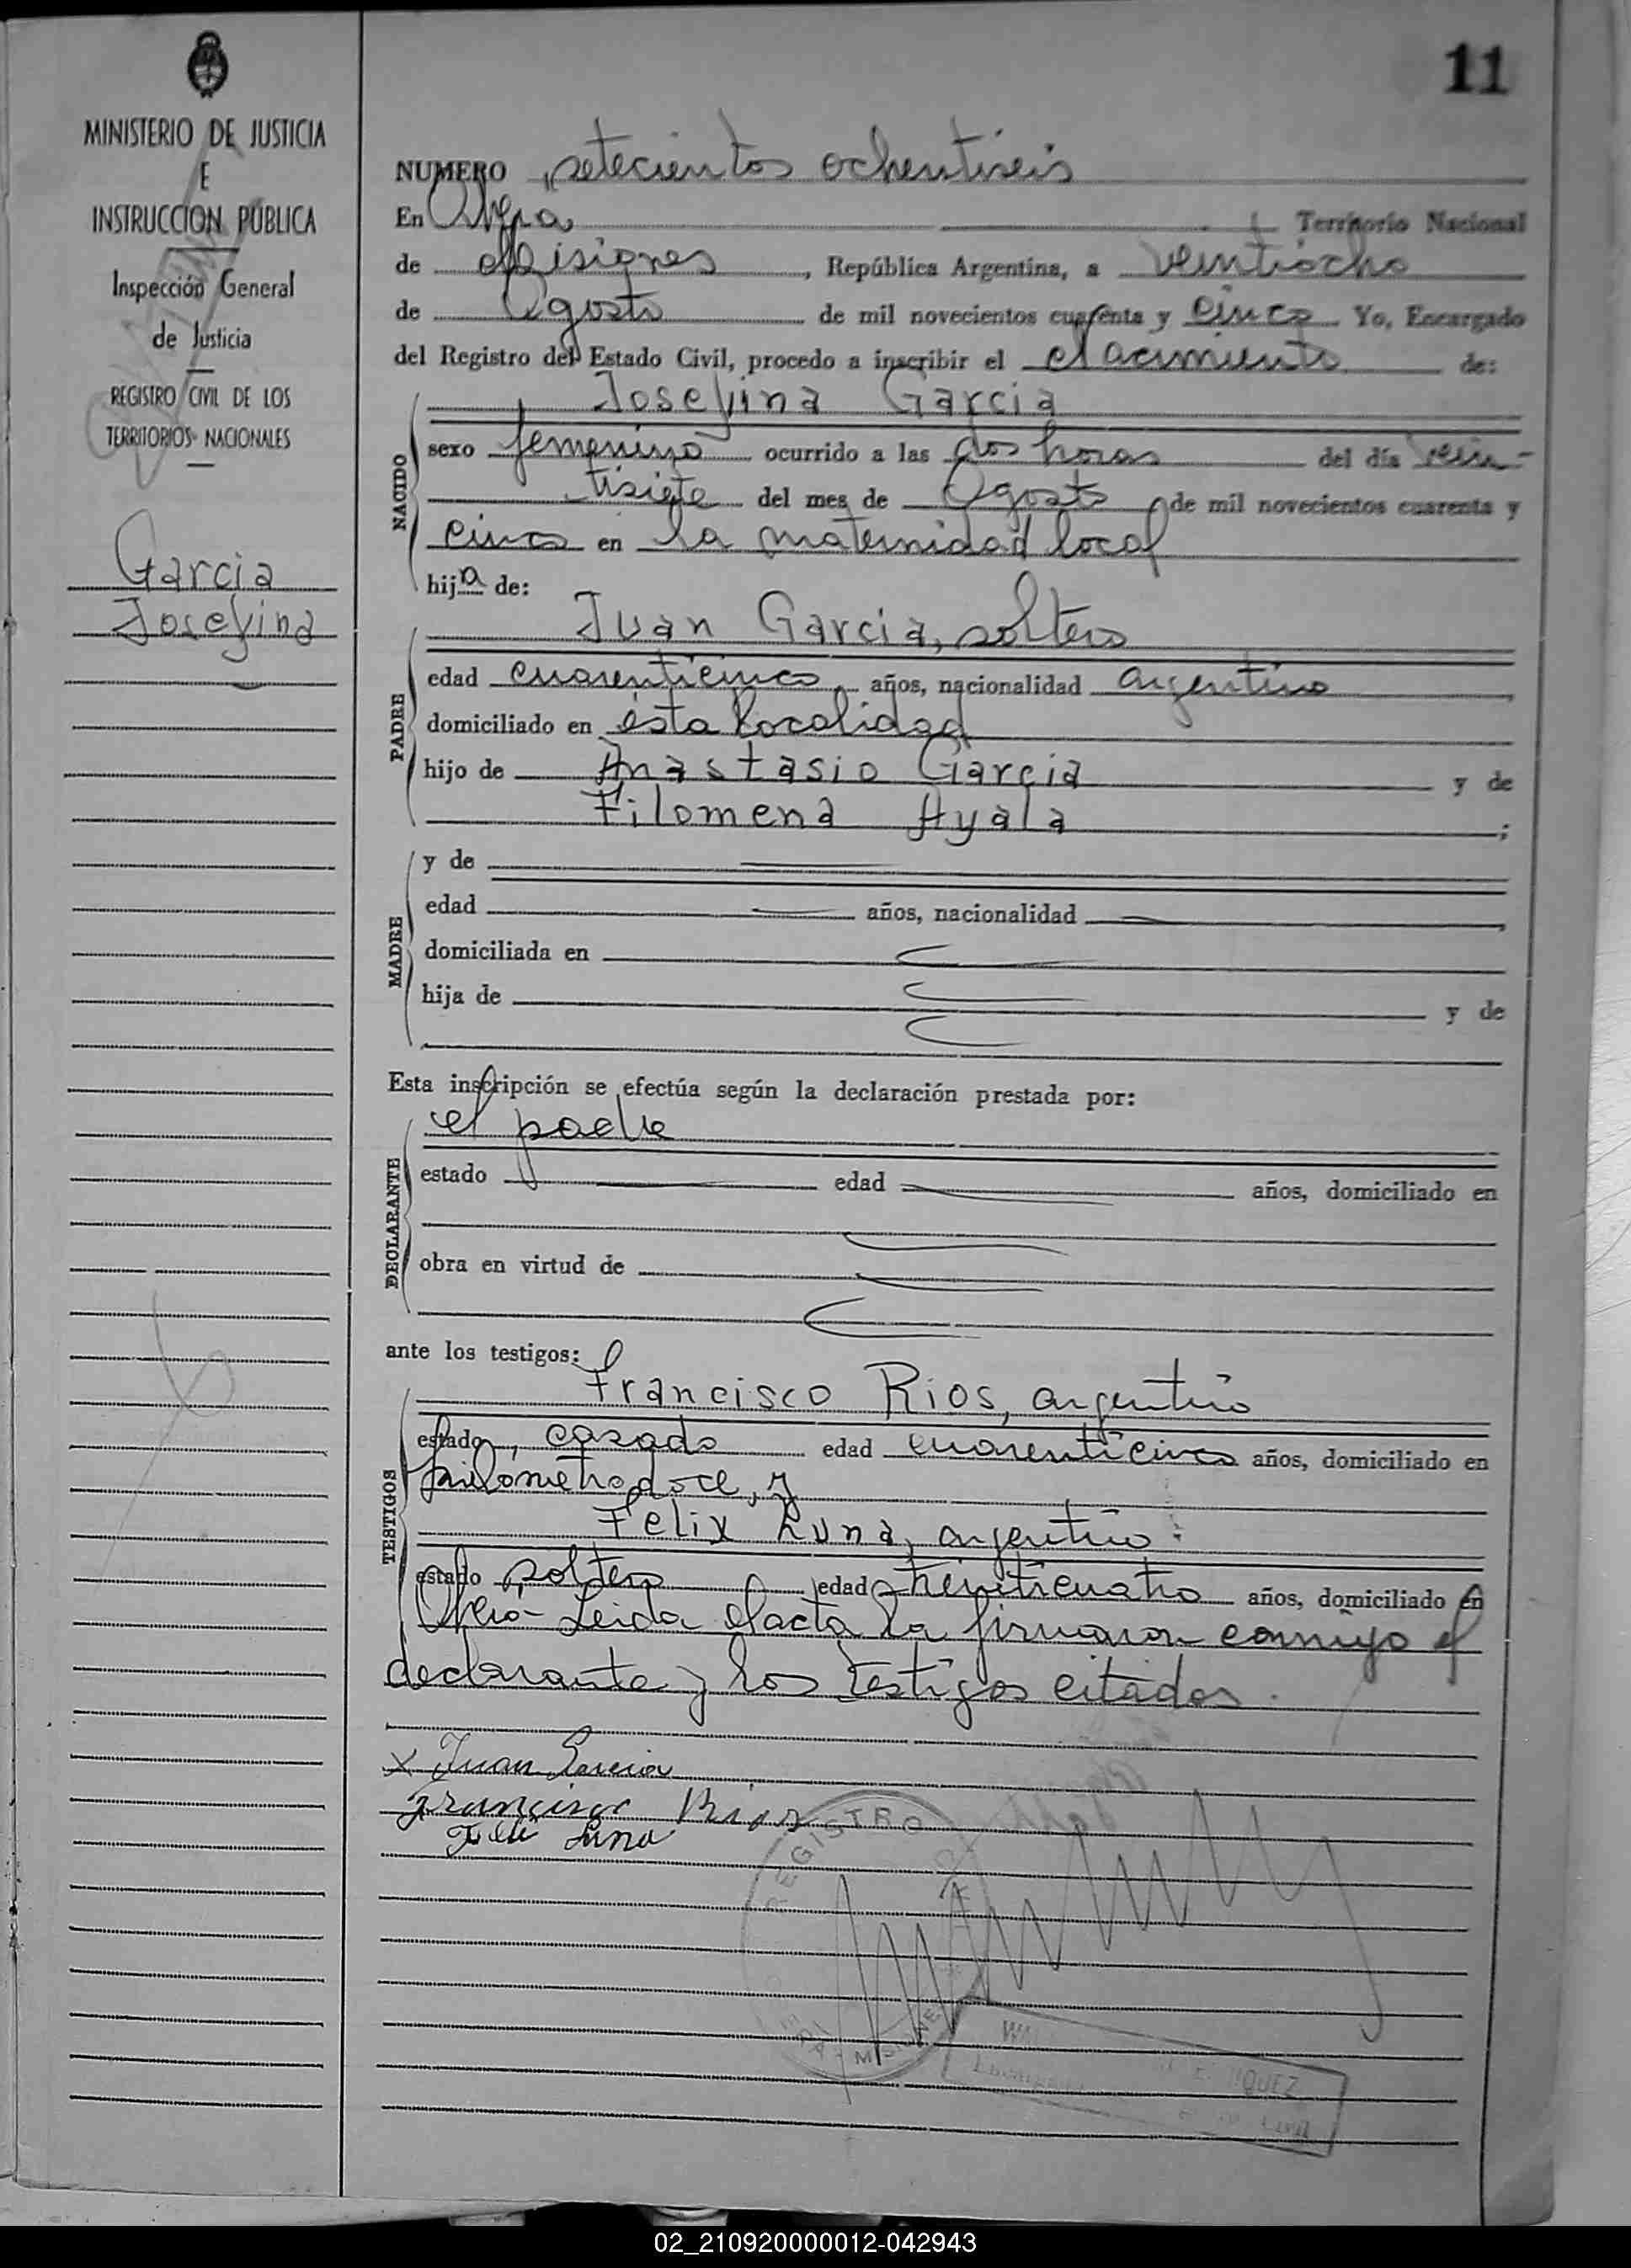 11
MINISTERIO DE JUSTICIA
E
INSTRUCCION PUBLICA
Inspección General
de Justicia
REGISTRO CIVIL DE LOS
TERRITORIOS NACIONALES
Garcia
Josefina
NUMERO setecientos ochentiseis
En Obera Territorio Nacional
de Misiones, República Argentina, a veintiocho
de Agosto de mil novecientos cuarenta y cinco Yo, Encargado
del Registro del Estado Civil, procedo a inscribir el Nacimiento de:
NACIDO
Josefina Garcia
sexo femenino ocurrido a las dos horas del día vein-
tisiete del mes de Agosto de mil novecientos cuarenta y
cinco en la maternidad local
hija de:
PADRE
Juan Garcia, soltero
edad cuarenticinco años, nacionalidad argentino
domiciliado en ésta localidad
hijo de Anastasio Garcia y de
Filomena Ayala;
MADRE
y de
edad años, nacionalidad
domiciliada en
hija de y de
Esta inscripción se efectúa según la declaración prestada por:
DECLARANTE
el padre
estado edad años, domiciliado en
obra en virtud de
ante los testigos:
TESTIGOS
Francisco Rios, argentino
estado, casado edad cuarenticinco años, domiciliado en
kilómetro doce, y
Felix Luna, argentino
estado soltero edad treinticuatro años, domiciliado en
Oberá- Leida el acta la firmaron conmigo el
declarante y los testigos citados.
x Juan Garcia
Francisco Rios
Feli Luna
REGISTRO
MISIONES
02_210920000012-042943